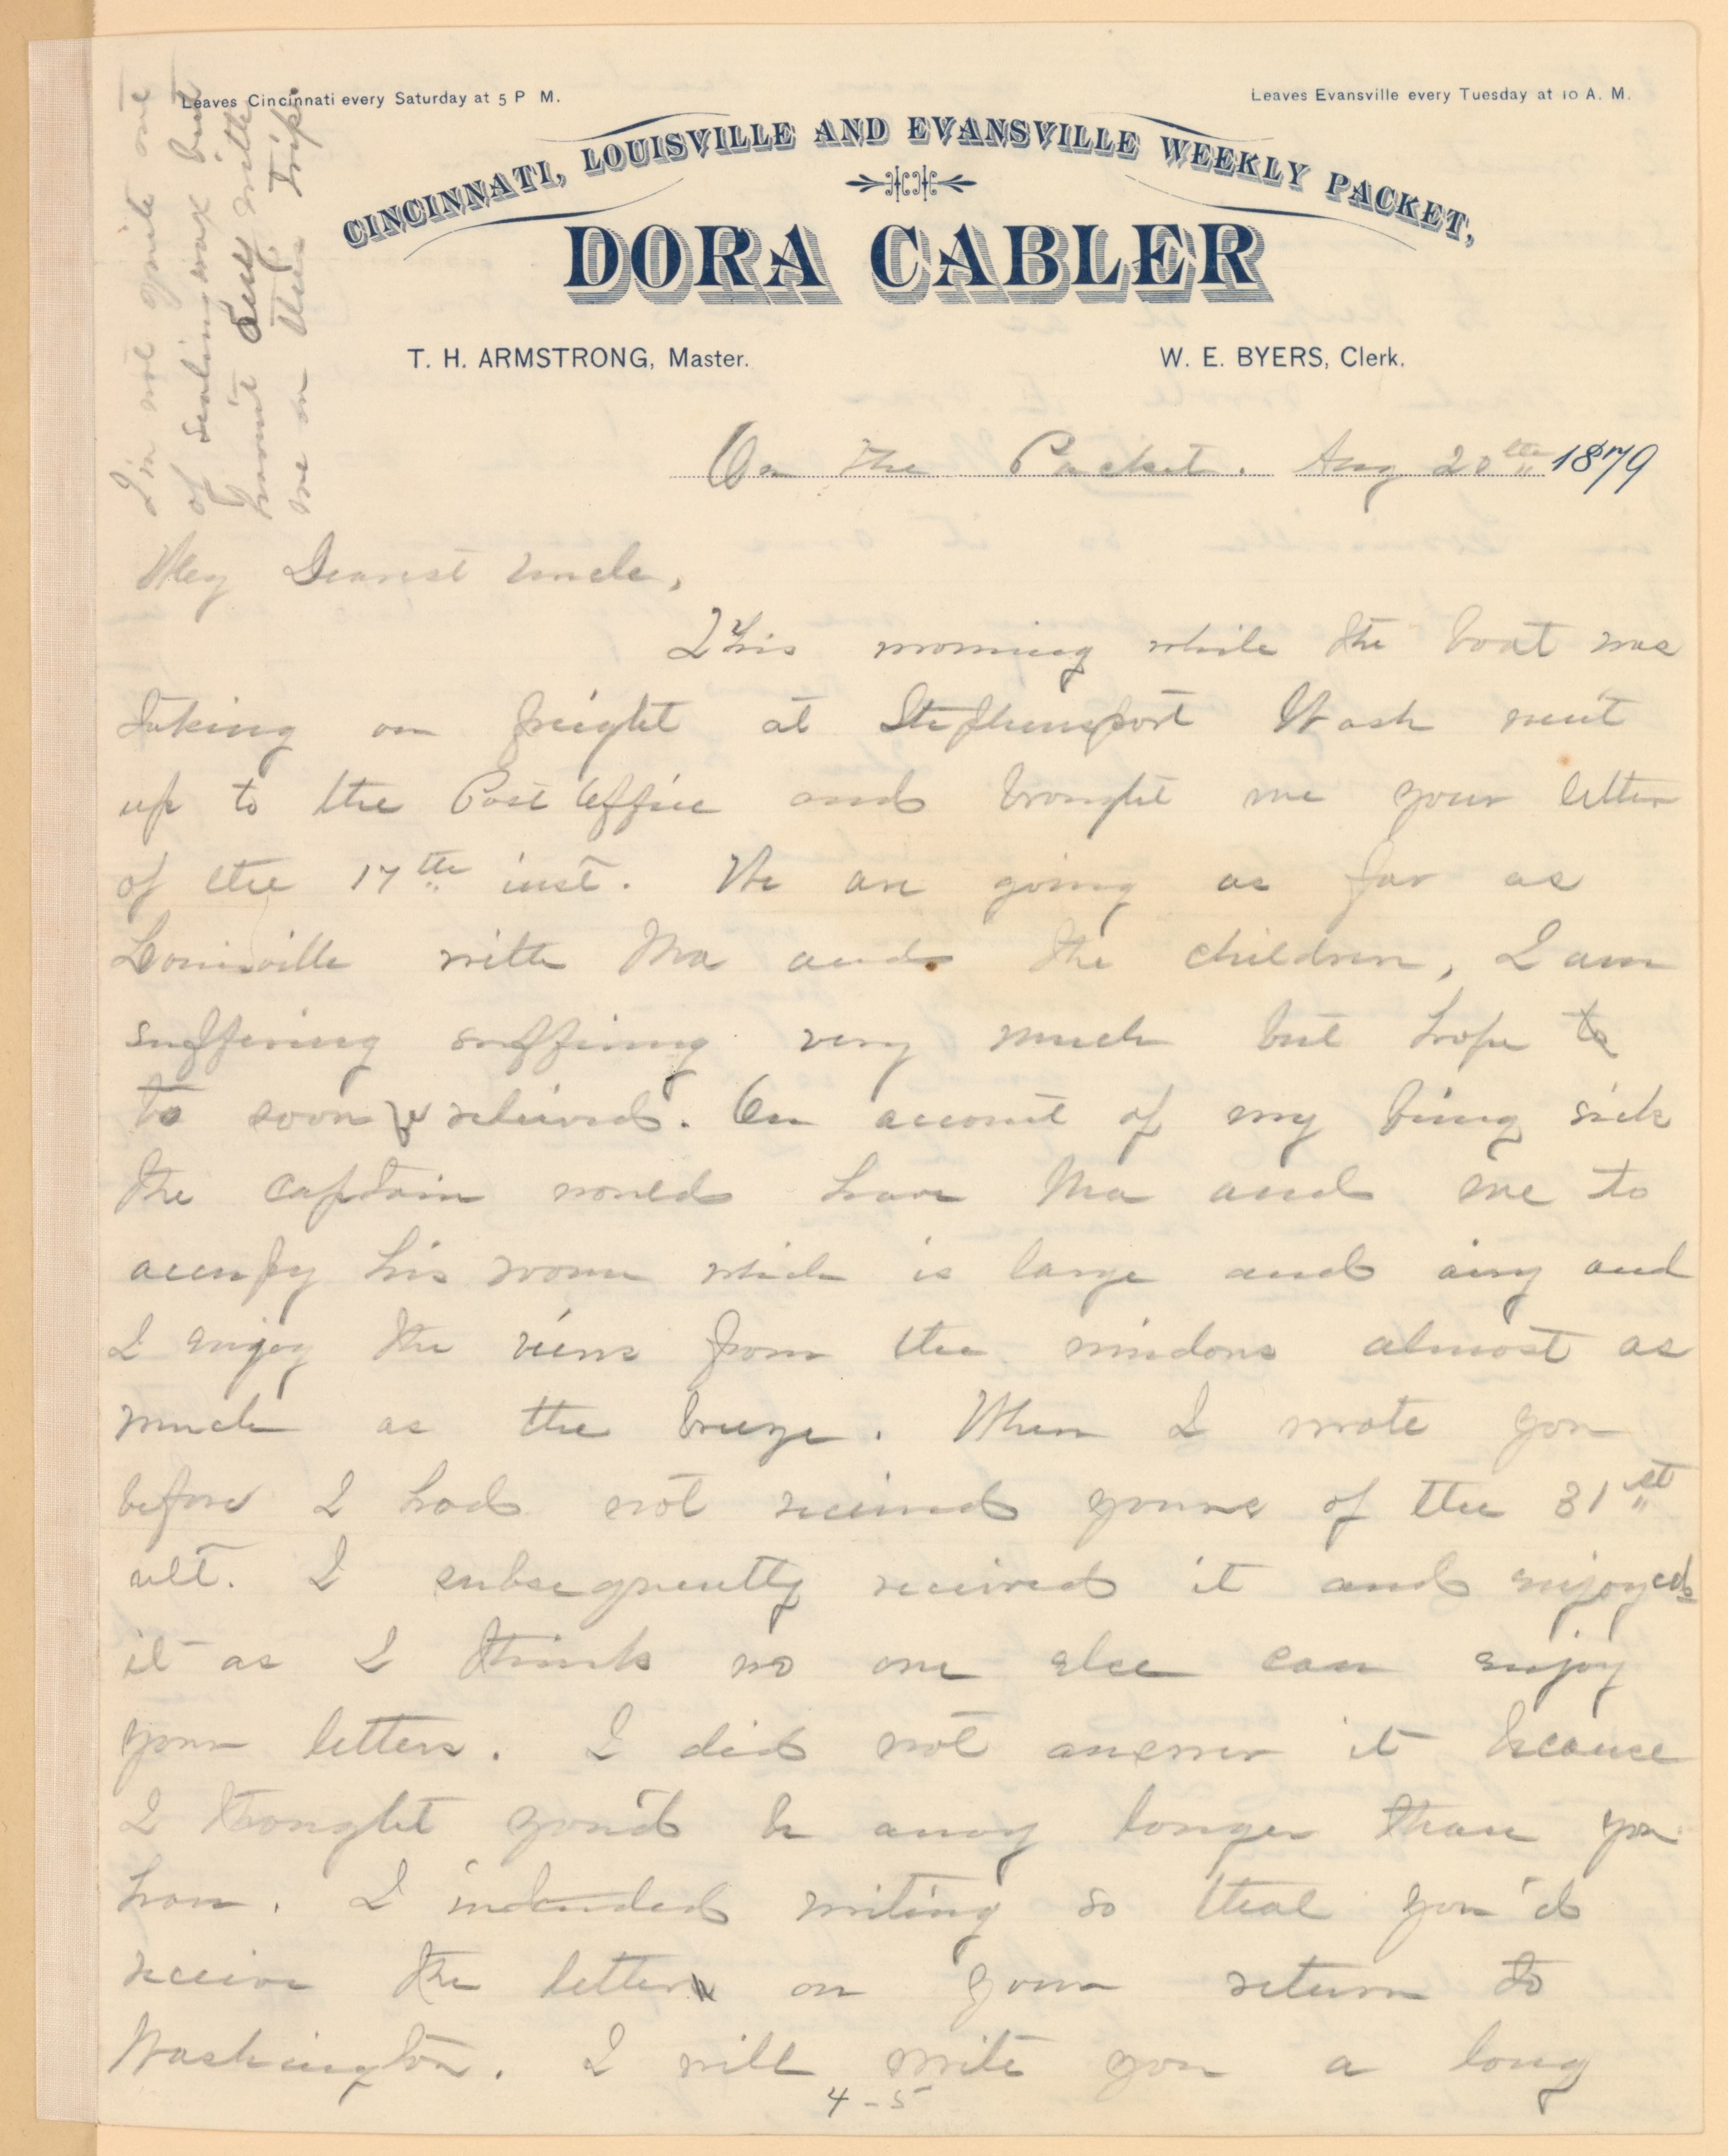 Leaves Cincinnati every Saturday at 5 P M.
Leaves Evansville every Tuesday at 10 A. M.
CINCINNATI, LOUISVILLE AND EVANSVILLE WEEKLY PACKET,
DORA CABLER
T. H. ARMSTRONG, Master.
W. E. BYERS, Clerk.
I'm not quite out
of sealing wax but
haven't any with
me on this trip.
On the Packet. Aug 20th 1879
My Dearest Uncle,
This morning while the boat was
taking on freight at Stephensport Wash went
up to the Post Office and brought me your letter
of the 17th inst. We are going as far as
Louisville with Ma and the children, I am
suffering suffering very much but hope to
to soon be relieved. On account of my being sick
the captain would have Ma and me to
accupy his room which is large and airy and
I enjoy the views from the windows almost as
much as the breeze. When I wrote you
before I had not received yours of the 31st
ult. I subsequently received it and enjoyed
it as I think no one else can enjoy
your letters. I did not answer it because
I thought you'd be away longer than you
have. I intended writing so that you'd
receive the letter on your return to
Washington. I will write you a long
4-5